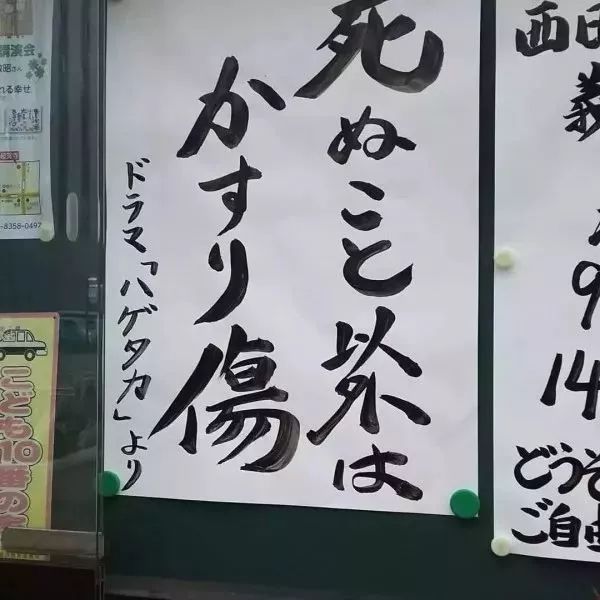 死ぬこと以外は
かすり傷
ドラマ「ハゲタカ」より
西
義
9
14
どうぞ
ご自由
講演会
れる幸せ
-8358-0497
こども
110番の